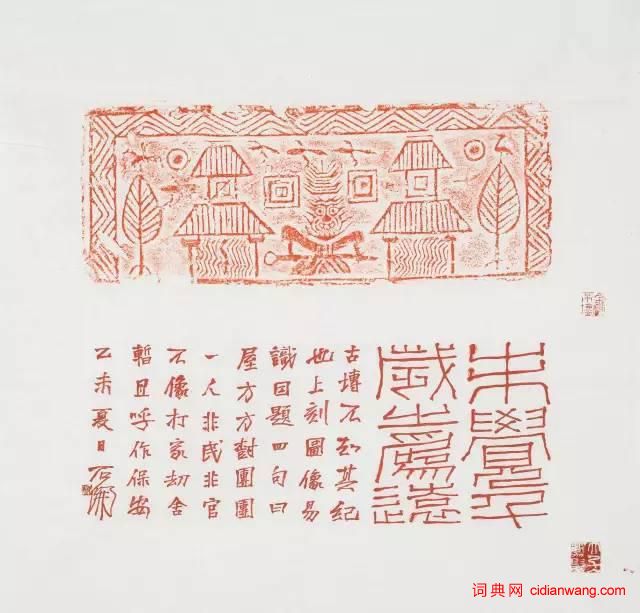 未覺千
歲之爲遠
古塼不知其紀
也上刻圖像易
識因題四句曰
屋方方對團團
一人非民非官
不像打家劫舍
暫且呼作保安
乙未夏日石
词典网 cidianwang.com